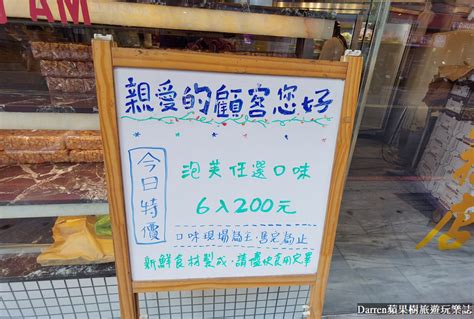 親愛的顧客您好
今日特價
泡芙任選口味
6入200元
口味現場為主.售完為止
新鮮食材製成.請儘快食用完畢
店
Darren蘋果樹旅遊玩樂誌